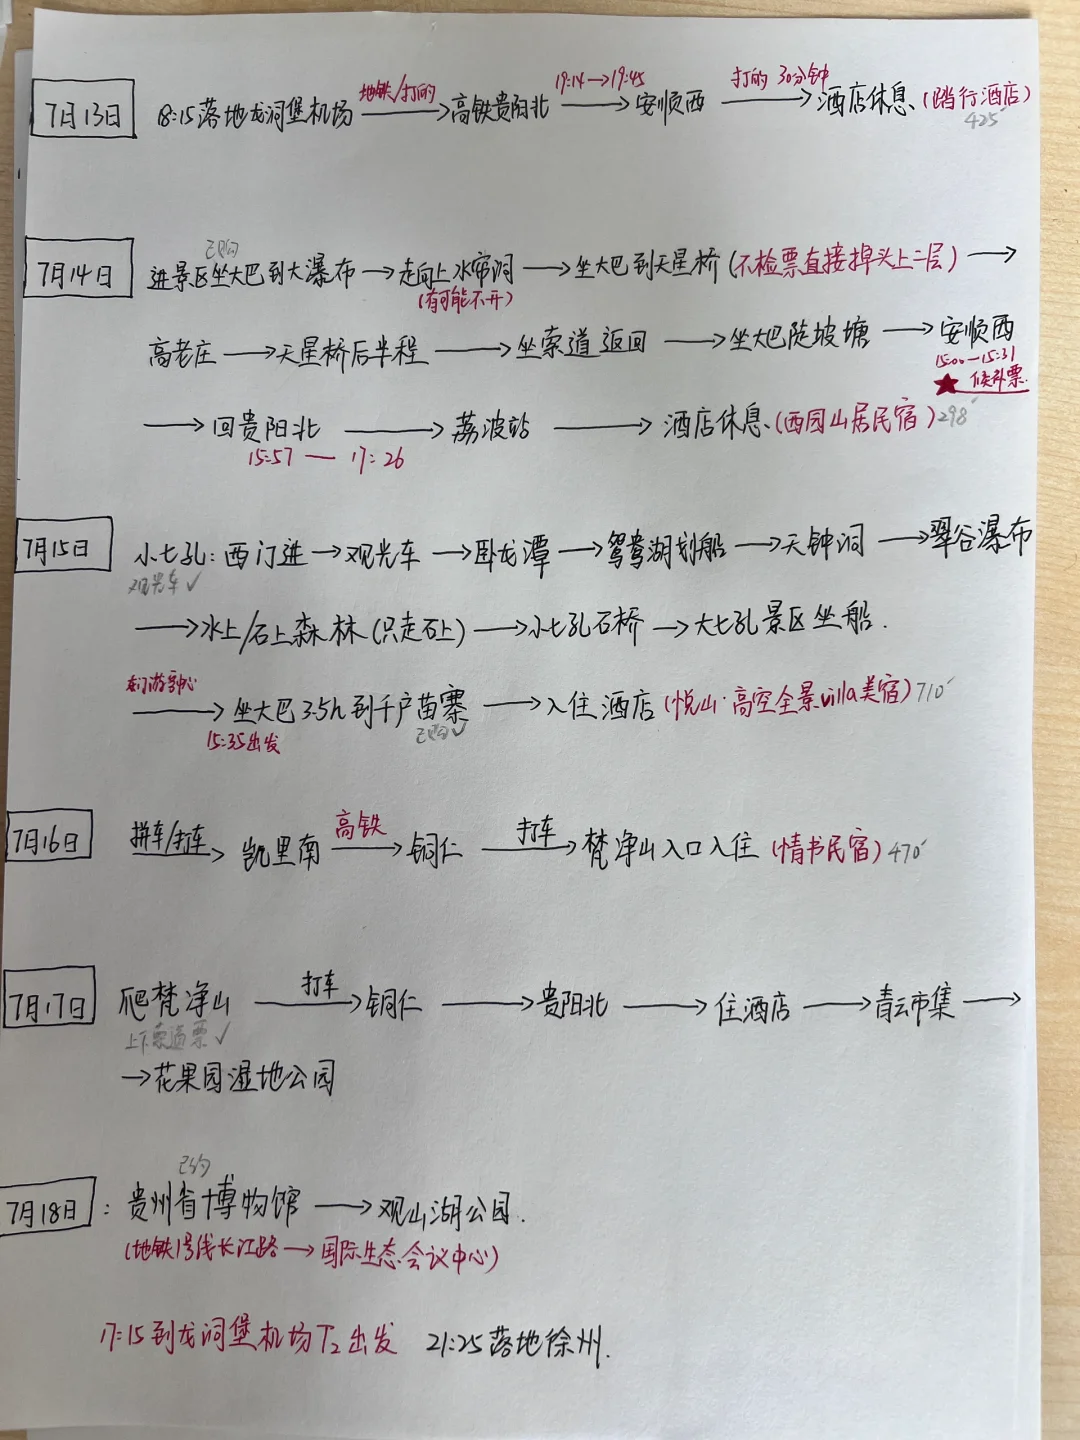 地铁/打的 19:14→19:45 打的 30分钟
7月13日 8:15落地龙洞堡机场→高铁贵阳北→安顺西→酒店休息(踏行酒店)
425
已购
7月14日 进景区坐大巴到大瀑布→走向上水帘洞→坐大巴到天星桥(不检票直接掉头上二层)→
(有可能不开)
高老庄→天星桥后半程→坐索道返回→坐大巴陡坡塘→安顺西
15:00—15:31
★候补票
→回贵阳北→荔波站→酒店休息(西园山居民宿)298
15:57—17:26
7月15日 小七孔:西门进→观光车→卧龙潭→鸳鸯湖划船→天钟洞→翠谷瀑布
观光车✓
→水上/石上森林(只走石上)→小七孔石桥→大七孔景区坐船.
东门游客中心
→坐大巴3.5h到千户苗寨→入住酒店(悦山·高空全景villa美宿)710
15:35出发 已购✓
拼车/打车 高铁 打车
7月16日 →凯里南→铜仁→梵净山入口入住(情书民宿)470
打车
7月17日 爬梵净山→铜仁→贵阳北→住酒店→青云市集→
上下索道票✓
→花果园湿地公园
已约
7月18日:贵州省博物馆→观山湖公园.
(地铁1号线长江路→国际生态会议中心)
17:15到龙洞堡机场T2出发 21:25落地徐州.